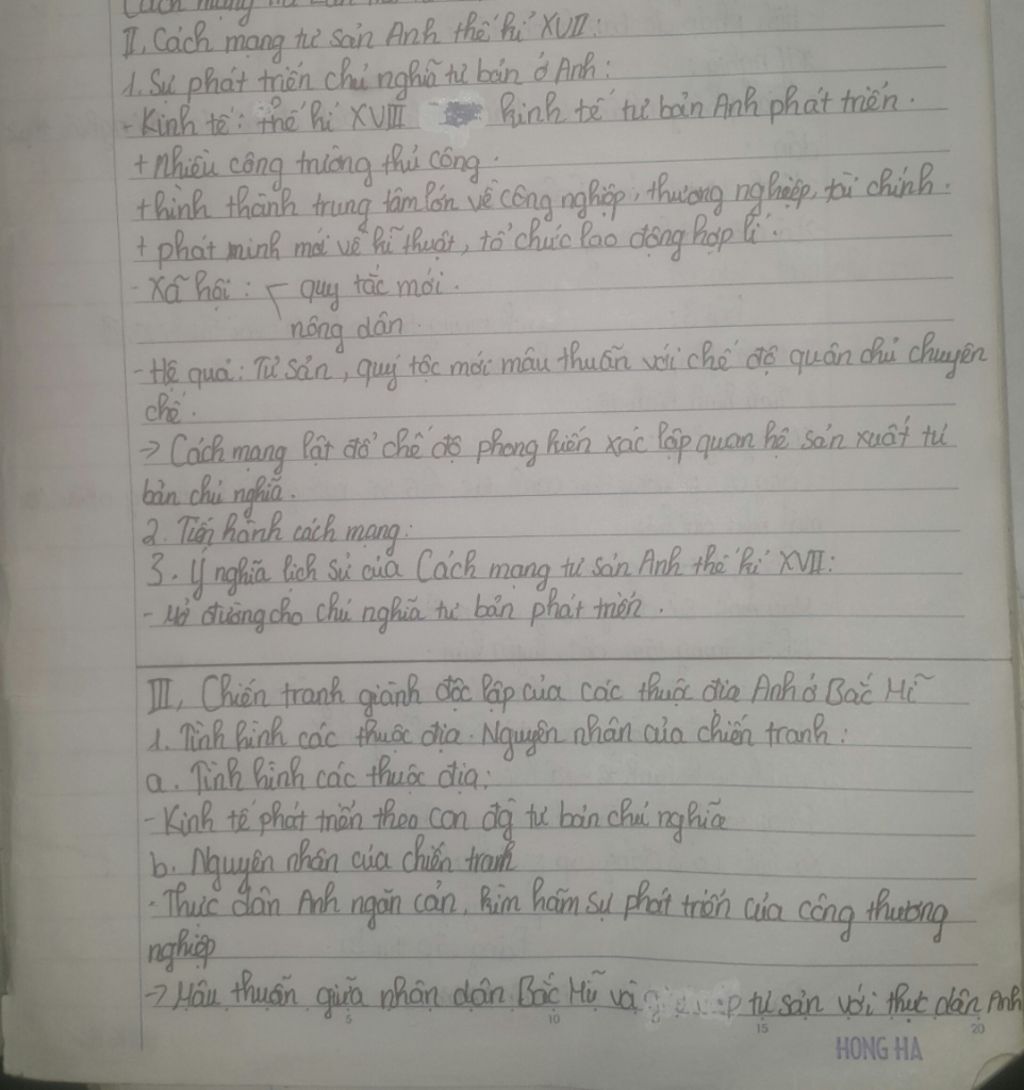 Cách mạng
II, Cách mạng tư sản Anh thế kỉ XVII:
1. Sự phát triển chủ nghĩa tư bản ở Anh:
- Kinh tế: thế kỉ XVIII kinh tế tư bản Anh phát triển.
+ Nhiều công trường thủ công.
+ hình thành trung tâm lớn về công nghiệp, thương nghiệp, tài chính.
+ phát minh mới về kĩ thuật, tổ chức lao động hợp lí.
- Xã hội: quy tắc mới.
nông dân.
- Hệ quả: Tư sản, quý tộc mới mâu thuẫn với chế độ quân chủ chuyên
chế.
→ Cách mạng lật đổ chế độ phong kiến xác lập quan hệ sản xuất tư
bản chủ nghĩa.
2. Tiến hành cách mạng:
3. Ý nghĩa lịch sử của Cách mạng tư sản Anh thế kỉ XVII:
- Mở đường cho chủ nghĩa tư bản phát triển.
III, Chiến tranh giành độc lập của các thuộc địa Anh ở Bắc Mĩ
1. Tình hình các thuộc địa. Nguyên nhân của chiến tranh:
a. Tình hình các thuộc địa:
- Kinh tế phát triển theo con đg tư bản chủ nghĩa
b. Nguyên nhân của chiến tranh
- Thực dân Anh ngăn cản, kìm hãm sự phát triển của công thương
nghiệp
→ Mâu thuẫn giữa nhân dân Bắc Mĩ và tư sản với thực dân Anh
5 10 15 20
HONG HA